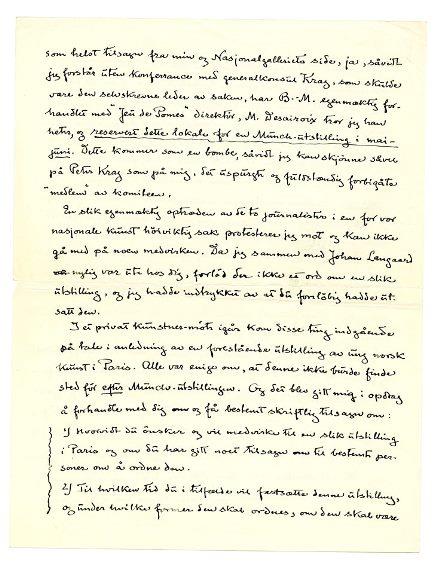 som helst tilsagn fra min og Nasjonalgalleriets side, ja, såvidt
jeg forstår uten konferranse med generalkonsul Krag, som skulde
være den selvskrevne leder av saken, har B.-M. egenmæktig for-
handlet med "Jeu de Pomes" direktör, M. Desairoix tror jeg han
heter, og reservert dette lokale for en Munch-utstilling i mai-
juni. Dette kommer som en bombe, såvidt jeg kan skjønne såvel
på Peter Krag som på mig, det uspurgte og fuldstændig forbigåtte
"medlem" av komiteen.
En slik egenmæktig optræden av de to journalister i en for vor
nasjonale kunst höiviktig sak protesterer jeg mot og kan ikke
gå med på noen medvirken. Da jeg sammen med Johan Langaard
nylig var ute hos dig, forlöd der ikke et ord om en slik
utstilling, og jeg hadde indtrykket av at du forlöbig hadde ut-
satt den.
I et privat kunstner-möte igår kom disse ting indgående
på tale i anledning av en forestående utstilling av ung norsk
kunst i Paris. Alle var enige om, at denne ikke burde finde
sted för efter Munch-utstillingen. Og det blev gitt mig i opdrag
å forhandle med dig om og få bestemt skriftlig tilsagn om:
1) Hvorvidt du önsker og vil medvirke til en slik utstilling
i Paris og om du har gitt noen tilsagn om til bestemte per-
soner om å ordne den.
2) Til hvilken tid du i tilfælde vil fastsætte denne utstilling,
og under hvilke former den skal ordnes, om den skal være